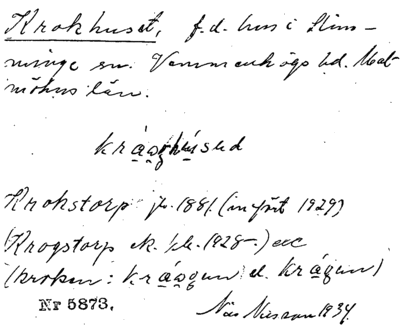 Krokhuset, f.d. hus i Slim-
minge sn. Vemmenhögs hd. Mal-
möhus län.
kråghúsed
Krokstorp jb. 1881 (infört 1929)
(Krogstorp ek. bl. 1928-) ecc
(kroken: krågen el. krågen)
Nr 5873.
Nils Nilsson 1934